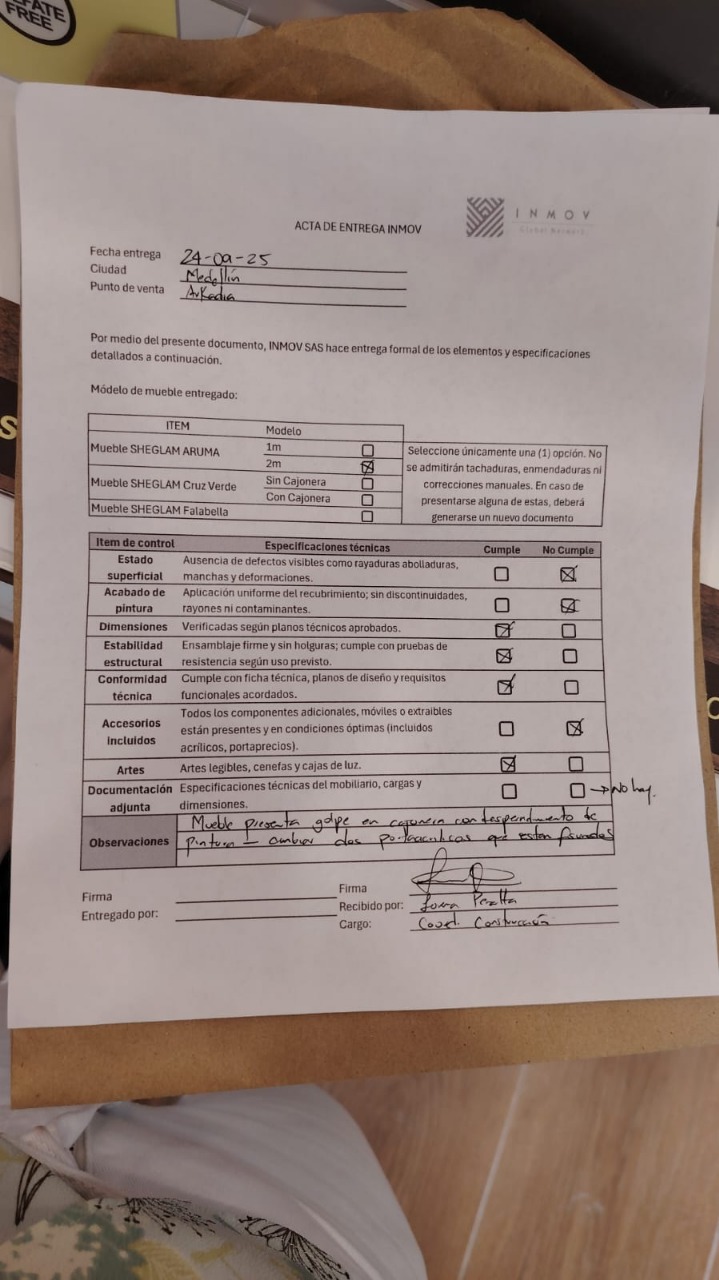 FATE
FREE
INMOV
ACTA DE ENTREGA INMOV
Fecha entrega 24-09-25
Ciudad Medellín
Punto de venta Arkadia
Por medio del presente documento, INMOV SAS hace entrega formal de los elementos y especificaciones
detallados a continuación.
Módelo de mueble entregado:
ITEM Modelo
Mueble SHEGLAM ARUMA 1m
2m
Mueble SHEGLAM Cruz Verde Sin Cajonera
Con Cajonera
Mueble SHEGLAM Falabella
Seleccione únicamente una (1) opción. No
se admitirán tachaduras, enmendaduras ni
correcciones manuales. En caso de
presentarse alguna de estas, deberá
generarse un nuevo documento
Item de control Especificaciones técnicas Cumple No Cumple
Estado superficial Ausencia de defectos visibles como rayaduras abolladuras,
manchas y deformaciones.
Acabado de pintura Aplicación uniforme del recubrimiento; sin discontinuidades,
rayones ni contaminantes.
Dimensiones Verificadas según planos técnicos aprobados.
Estabilidad estructural Ensamblaje firme y sin holguras; cumple con pruebas de
resistencia según uso previsto.
Conformidad técnica Cumple con ficha técnica, planos de diseño y requisitos
funcionales acordados.
Accesorios incluidos Todos los componentes adicionales, móviles o extraibles
están presentes y en condiciones óptimas (incluidos
acrílicos, portaprecios).
Artes Artes legibles, cenefas y cajas de luz.
Documentación adjunta Especificaciones técnicas del mobiliario, cargas y
dimensiones.
→ No hay.
Observaciones Mueble presenta golpe en con desprendimiento de
pintura — cambiar dos que estan fisurados
Firma
Entregado por:
Firma
Recibido por: Peralta
Cargo: Coord. Construcción